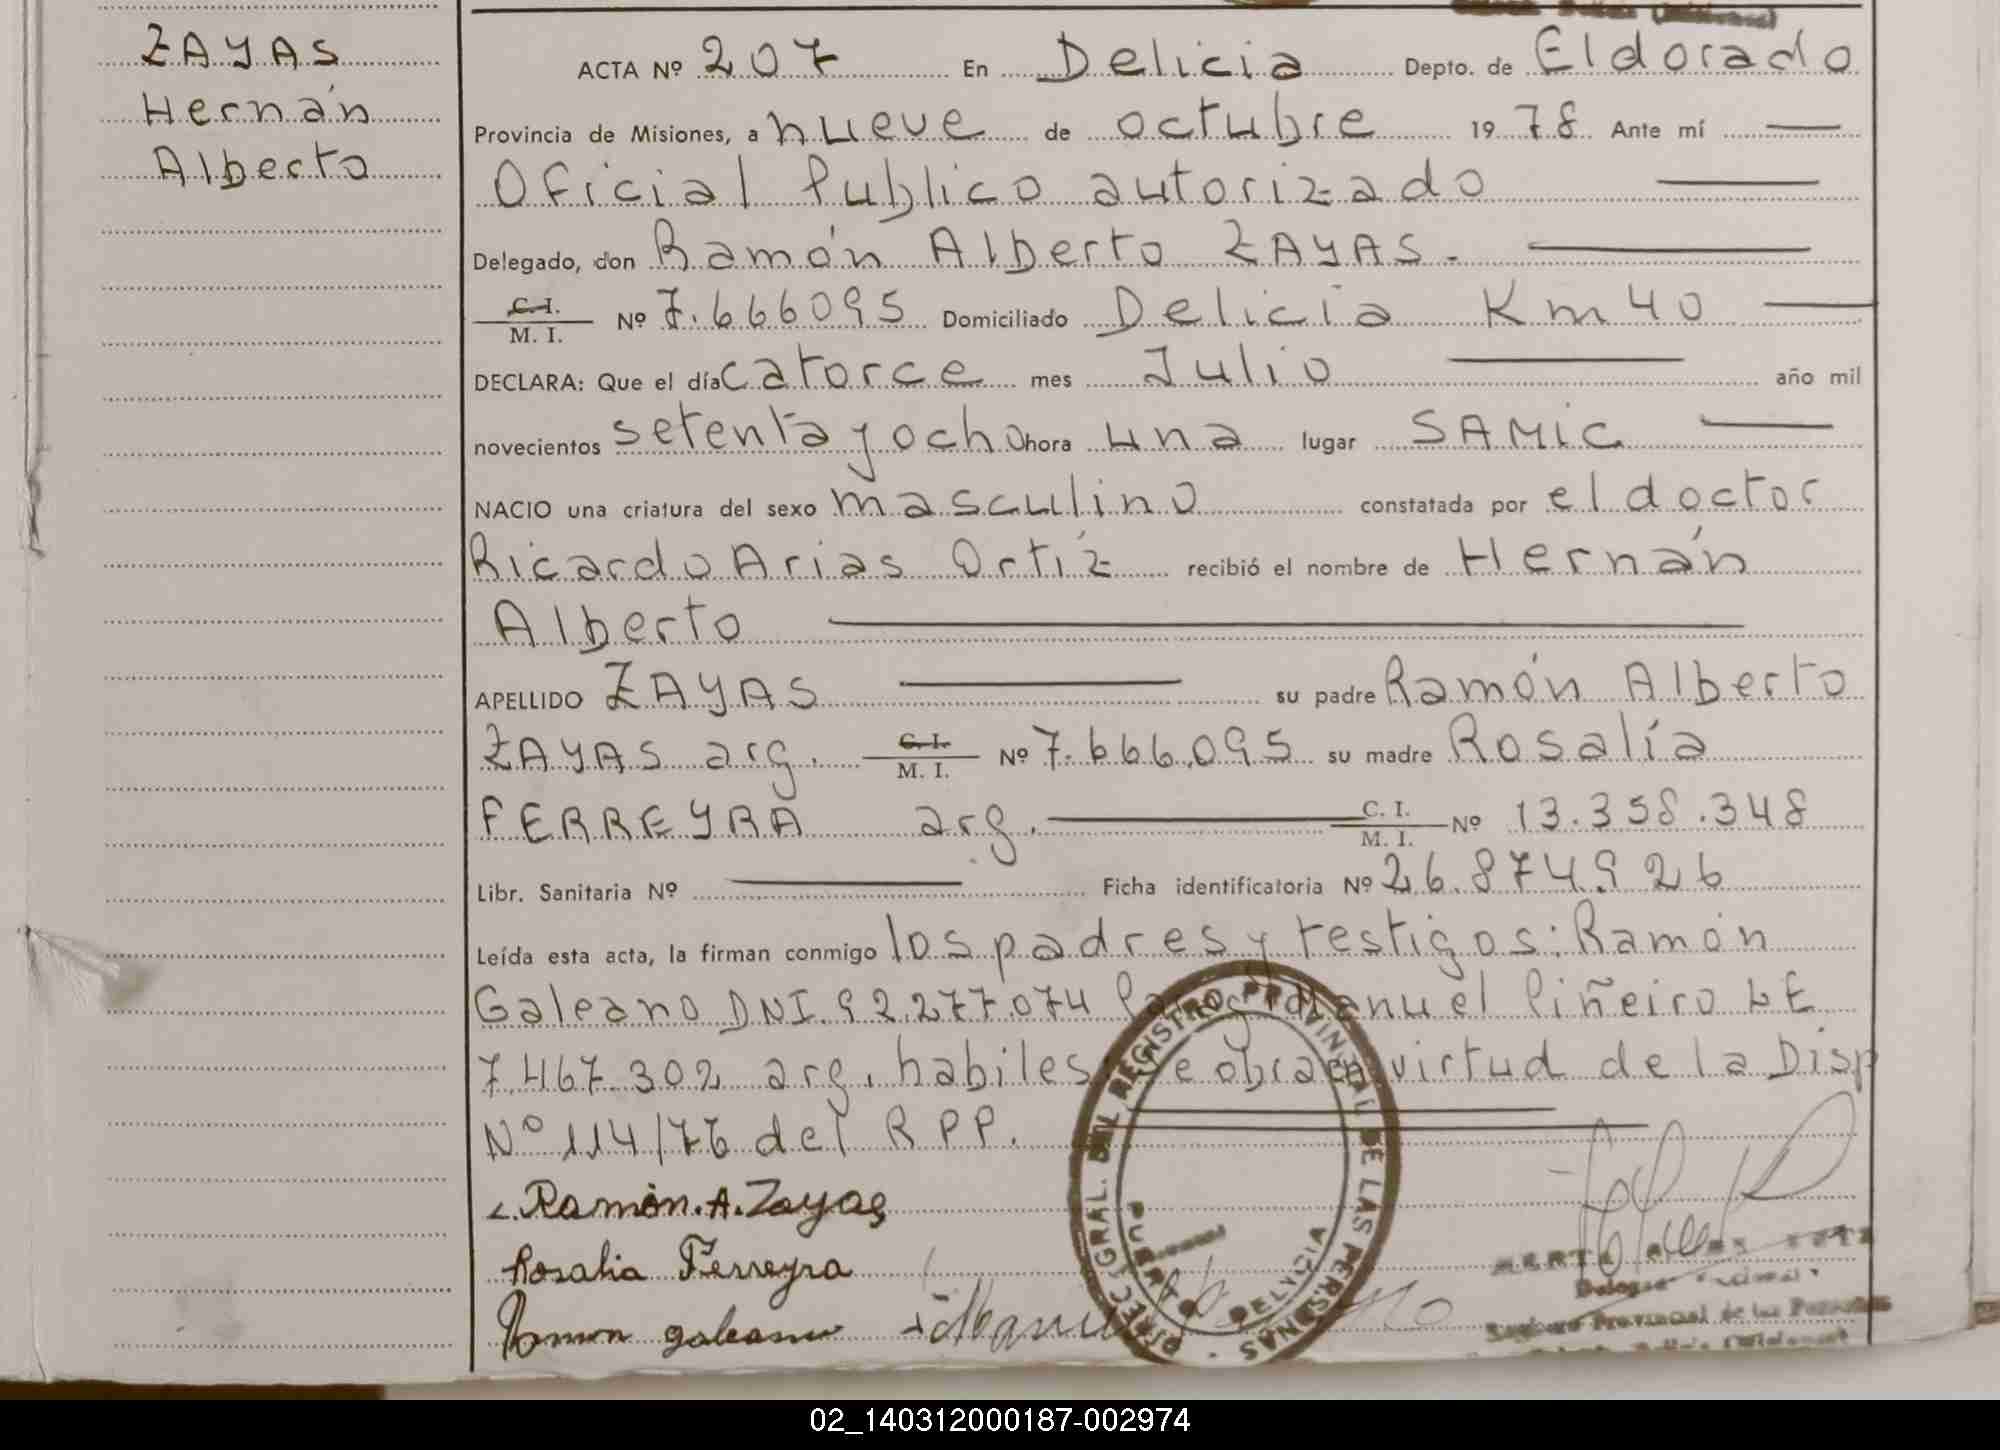 ZAYAS
Hernán
Alberto
ACTA Nº 207 En Delicia Depto. de Eldorado
Provincia de Misiones, a nueve de octubre 1978 Ante mí
Oficial Publico autorizado
Delegado, don Ramón Alberto ZAYAS.
C. I. / M. I. Nº 7.666095 Domiciliado Delicia Km 40
DECLARA: Que el día catorce mes Julio año mil
novecientos setenta y ocho hora una lugar SAMIC
NACIO una criatura del sexo masculino constatada por el doctor
Ricardo Arias Ortíz recibió el nombre de Hernán
Alberto
APELLIDO ZAYAS su padre Ramón Alberto
ZAYAS arg. C. I. / M. I. Nº 7.666.095 su madre Rosalía
FERREYRA arg. C. I. / M. I. Nº 13.358.348
Libr. Sanitaria Nº Ficha identificatoria Nº 26.874.926
Leída esta acta, la firman conmigo los padres y testigos: Ramón
Galeano DNI. 92.277.074 Manuel Piñeiro LE
7.467.302 arg. habiles de obra en virtud de la Disp
Nº 114/76 del R P P.
Ramón. A. Zayas
Rosalia Ferreyra
Ramon galeano
DIREC. GRAL. DEL REGISTRO PROVINCIAL DE LAS PERSONAS
PUERTO DELICIA
Registro Provincial de las Personas
02_140312000187-002974